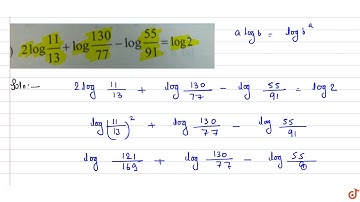 ) 2 log 11/13 + log 130/77 − log 55/91 = log 2
a log b = log b^a
Soln:—
2 log 11/13 + log 130/77 − log 55/91 = log 2
log (11/13)^2 + log 130/77 − log 55/91
log 121/169 + log 130/77 − log 55/9